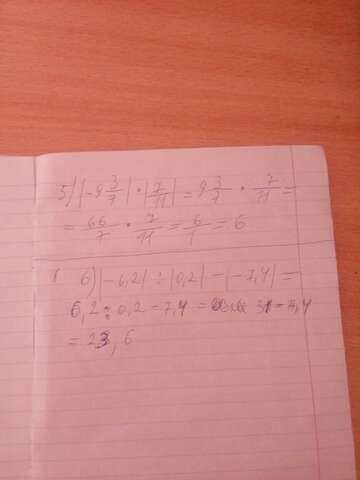 5) |-9 3/7| · |7/11| = 9 3/7 · 7/11 =
= 66/7 · 7/11 = 6/1 = 6
6) |-6,2| ÷ |0,2| - |-7,4| =
6,2 ÷ 0,2 - 7,4 = 31 - 7,4
= 23,6